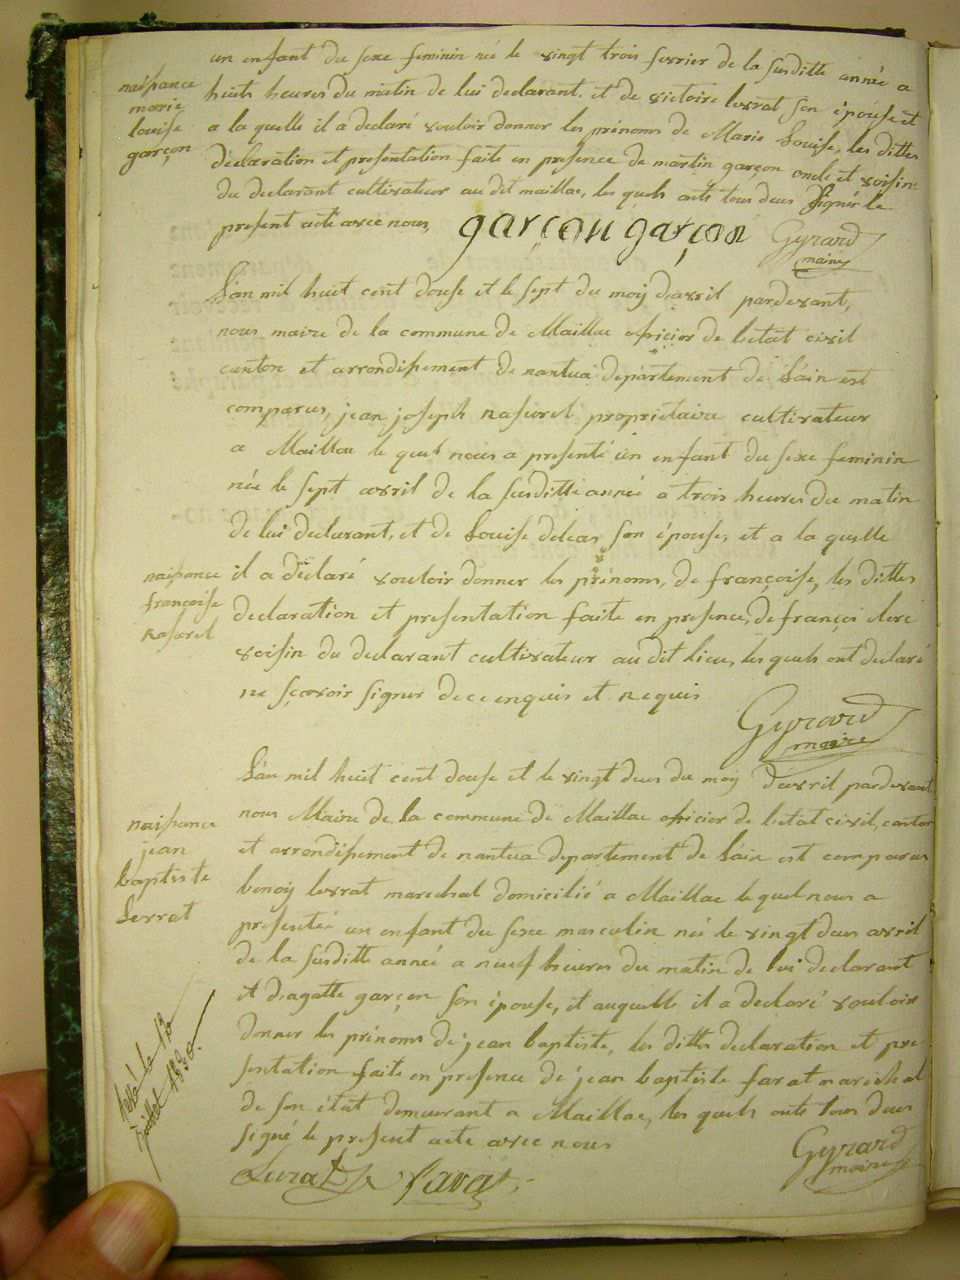 un enfant du sexe feminin né le vingt trois fevrier de la susditte année a
naissance
marie
louise
garçon
huits heures du matin de lui declarant, et de victoire levrat son épouse, et
a la quelle il a declaré vouloir donner les prénoms de Marie Louise, les dittes
déclaration et presentation faite en presence de martin garçon oncle et voisin
du declarant cultivateur au dit maillac, les quels onts tous deux signér le
present acte avec nous,
garçon garçon
Gyrard
maire
L'an mil huit cent douse et le sept du moy d'avril pardevant,
nous maire de la commune de Maillac officier de l'etat civil
canton et arrondissement de nantua departement de L'ain est
comparus, jean joseph Raserel propriétaire cultivateur
a Maillac le quel nous a presenté un enfant du sexe feminin
née le sept avril de la susditte année a trois heures du matin
de lui declarant, et de Louise deleas son épouse, et a la quelle
naissance
françoise
Raserel
il a déclaré vouloir donner les prénoms, de françoise, les dittes
declaration et presentation faite en presence, de françoi clerc
voisin du declarant cultivateur au dit lieu, les quels ont declaré
ne sçavoir signer de ce enquis et requis
Gyrard
maire
L'an mil huit cent douse et le vingt deux du moy d'avril pardevant
naissance
jean
baptiste
Levrat
nous Maire de la commune de Maillac officier de l'etat civil, canton
et arrondissement de nantua departement de L'ain est comparus
benoiy levrat marechal domicilié a Maillac le quel nous a
presenté un enfant du sexe masculin né le vingt deux avril
de la susditte année a neuf heures du matin de lui declarant
et d'agatte garçon son épouse, et auquelle il a declaré vouloir
donner les prénoms de jean baptiste, les dittes declaration et pre
sentation faite en presence de jean baptiste favat marechal
de son état demeurant a Maillac, les quels onts tous deux
signé le present acte avec nous
Levrat favat
Gyrard
maire
le 12
juillet 1830.